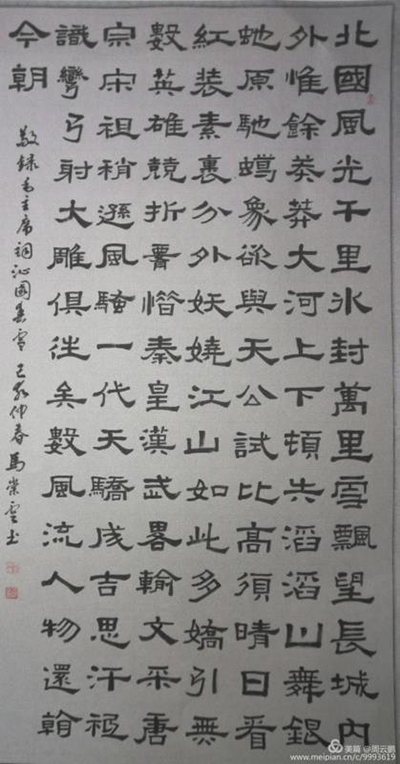 北國風光千里冰封萬里雪飄望長城內
外惟餘莽莽大河上下頓失滔滔山舞銀
虵原馳蠟象欲與天公試比高須晴日看
紅裝素裹分外妖嬈江山如此多嬌引無
數英雄競折腰惜秦皇漢武畧輸文采唐
宗宋祖稍遜風騷一代天驕成吉思汗衹
識彎弓射大雕俱往矣數風流人物還
今朝
敬錄毛主席詞沁園春雪 己亥仲春馬崇雲书
美篇 @周云鹏
www.meipian.cn/c/9993619